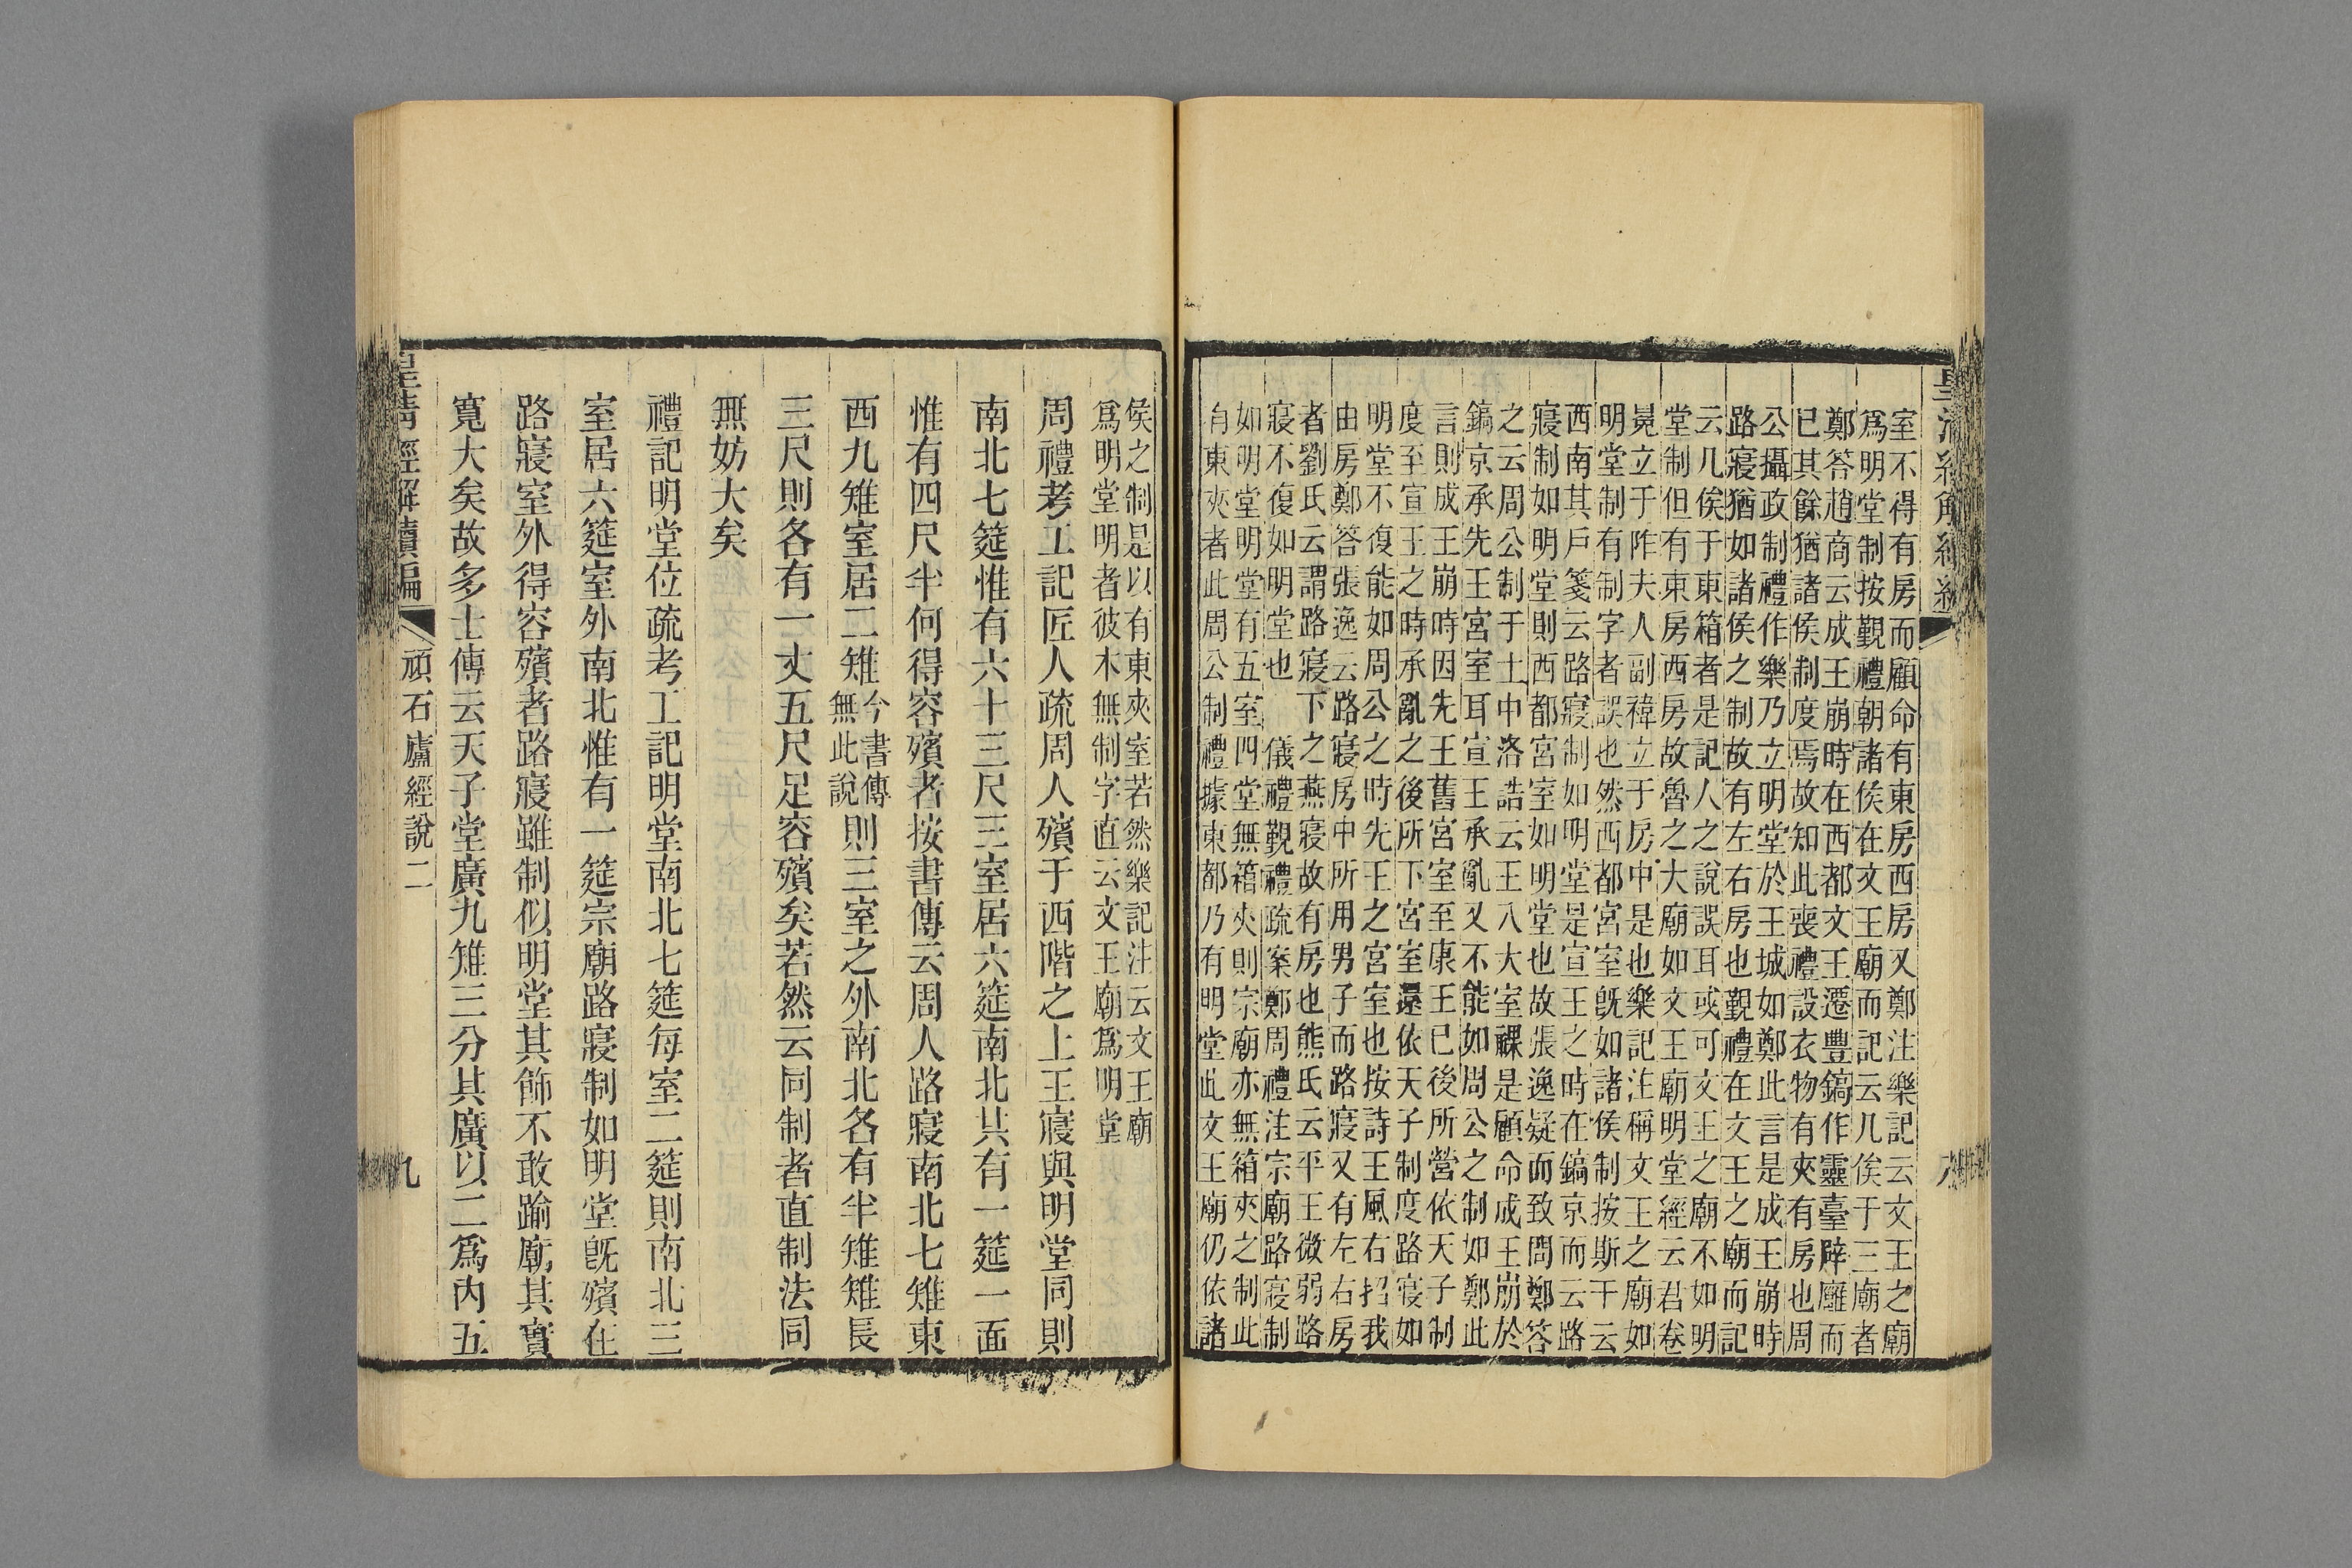 室不得有房而顧命有東房西房又鄭注樂記云文王之廟
爲明堂制按覲禮朝諸侯在文王廟而記云几俟于三廟者
鄭答趙商云成王崩時在西都文王遷豐鎬作靈臺辟廱而
已其餘猶諸侯制度焉故知此喪禮設衣物有夾有房也周
公攝政制禮作樂乃立明堂於王城如鄭此言是成王崩時
路寢猶如諸侯之制故有左右房也覲禮在文王之廟而記
云几俟于東箱者是記人之說誤耳或可文王之廟不如明
堂制但有東房西房故魯之大廟如文王廟明堂經云君卷
冕立于阼夫人副褘立于房中是也樂記注稱文王之廟如
明堂制有制字者誤也然西都宮室旣如諸侯制按斯干云
西南其戶箋云路寢制如明堂是宣王之時在鎬京而云路
寢制如明堂則西都宮室如明堂也故張逸疑而致問鄭答
之云周公制于土中洛誥云王入大室祼是顧命成王崩於
鎬京承先王宮室耳宣王承亂又不能如周公之制如鄭此
言則成王崩時因先王舊宮室至康王已後所營依天子制
度至宣王之時承亂之後所下宮室還依天子制度路寢如
明堂不復能如周公之時先王之宮室也按詩王風右招我
由房鄭答張逸云路寢房中所用男子而路寢又有左右房
者劉氏云謂路寢下之燕寢故有房也熊氏云平王微弱路
寢不復如明堂也 儀禮覲禮疏案鄭周禮注宗廟路寢制
如明堂明堂有五室四堂無箱夾則宗廟亦無箱夾之制此
有東夾者此周公制禮據東都乃有明堂此文王廟仍依諸
侯之制是以有東夾室若然樂記注云文王廟
爲明堂明者彼本無制字直云文王廟爲明堂
周禮考工記匠人疏周人殯于西階之上王寢與明堂同則
南北七筵惟有六十三尺三室居六筵南北共有一筵一面
惟有四尺半何得容殯者按書傳云周人路寢南北七雉東
西九雉室居二雉今書傳無此說則三室之外南北各有半雉雉長
三尺則各有一丈五尺足容殯矣若然云同制者直制法同
無妨大矣
禮記明堂位疏考工記明堂南北七筵每室二筵則南北三
室居六筵室外南北惟有一筵宗廟路寢制如明堂旣殯在
路寢室外得容殯者路寢雖制似明堂其飾不敢踰廟其實
寬大矣故多士傳云天子堂廣九雉三分其廣以二爲內五
皇清經解續編 頑石廬經說二 九